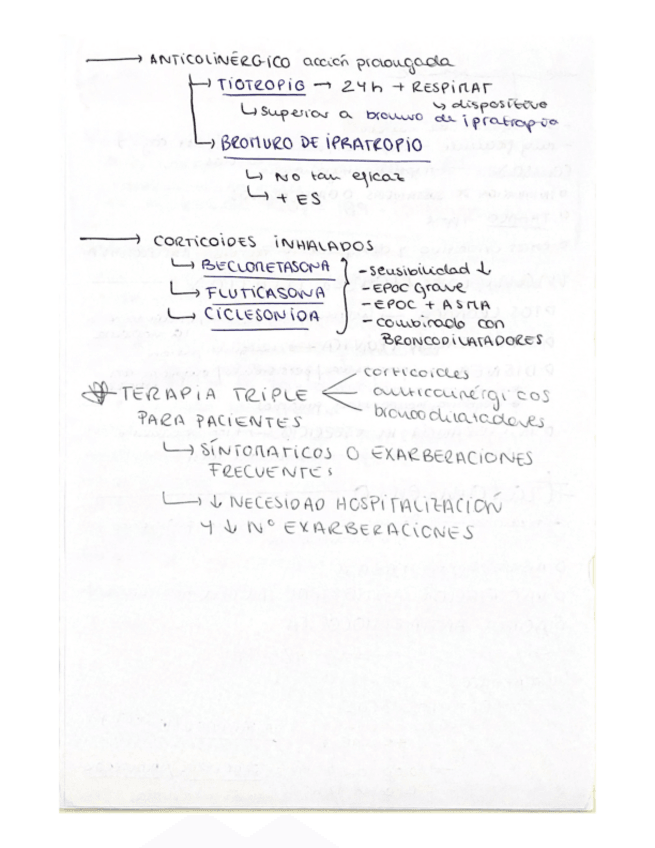 → ANTICOLINÉRGICO acción prolongada
→ TIOTROPIO → 24h + RESPIMAT
↳ dispositivo
↳ superior a bromuro de ipratropio
→ BROMURO DE IPRATROPIO
↳ No tan eficaz
↳ + ES
→ CORTICOIDES INHALADOS
↳ BECLOMETASONA
↳ FLUTICASONA
↳ CICLESONIDA
- sensibilidad ↓
- EPOC grave
- EPOC + ASMA
- combinado con
BRONCODILATADORES
TERAPIA TRIPLE
PARA PACIENTES
corticoides
anticolinérgicos
broncodilatadores
↳ SÍNTOMATICOS O EXARBERACIONES
FRECUENTES
↳ ↓ NECESIDAD HOSPITALIZACIÓN
Y ↓ Nº EXARBERACIONES